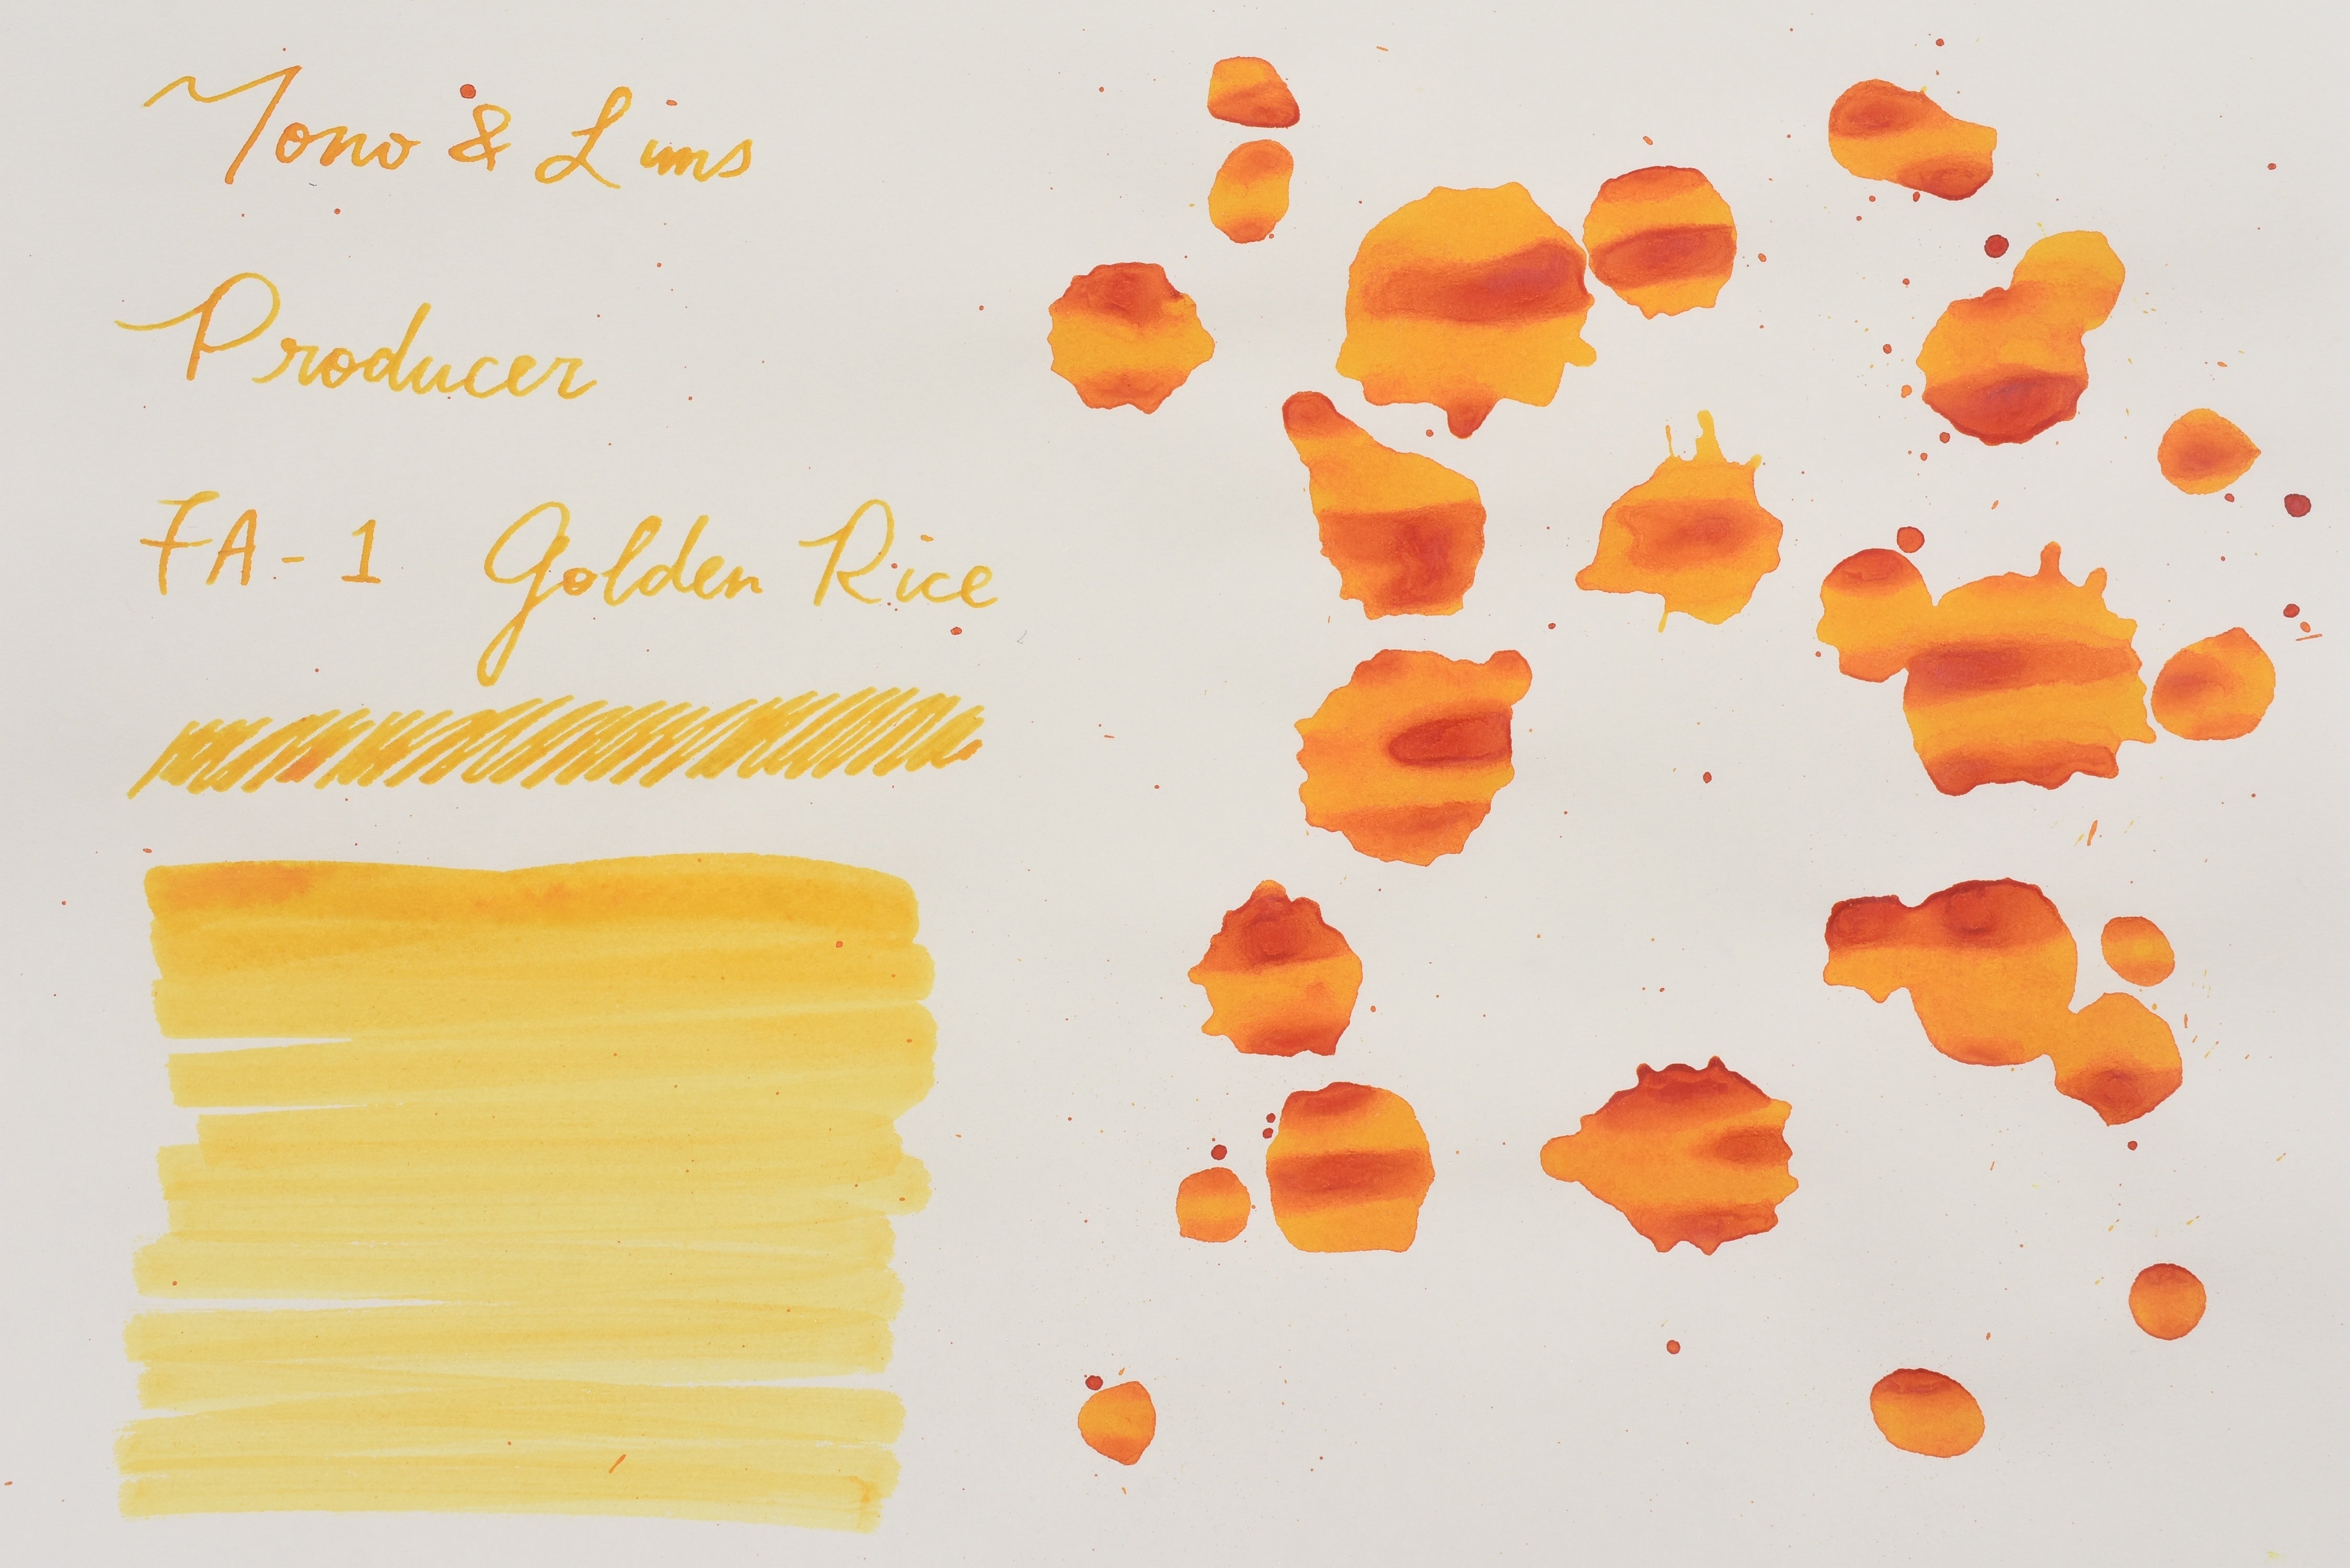 Tono & Lims
Producer
FA-1 Golden Rice